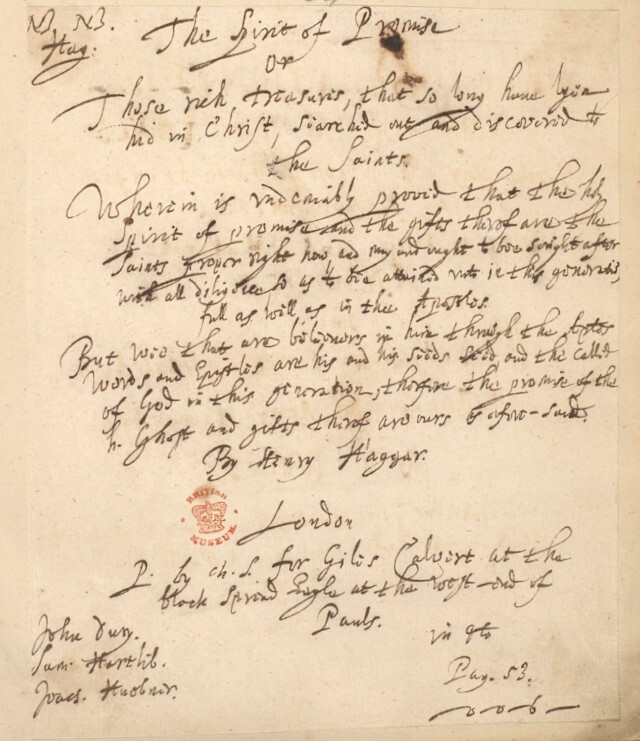 NB. NB.
Hag.
The Spirit of Promise
Or
Those rich treasures, that so long haue lyen
hid in Christ, searched out and discovered to
the Saints.
Wherein is vndeniably proved that the holy
Spirit of promise and the gifts therof are the
Saints proper right now, and may and ought to bee sought after
with all diligence so as to bee attained vnto in this generatiō,
full as well as in the Apostles.
But wee that are believers in him through the Aptes
words and Epistles are his and his seeds seed and the called
of God in this generation, therfore the promise of the
h. Ghost and gifts therof are ours as afore-said.
By Henry Haggar.
BRITISH
MUSEUM
London
P. by Ch. S. for Giles Calvert at the
black spread Eagle at the West-end of
Pauls.
in 4to
Pag. 53.
John Dury.
Sam. Hartlib.
Joach. Huebner.